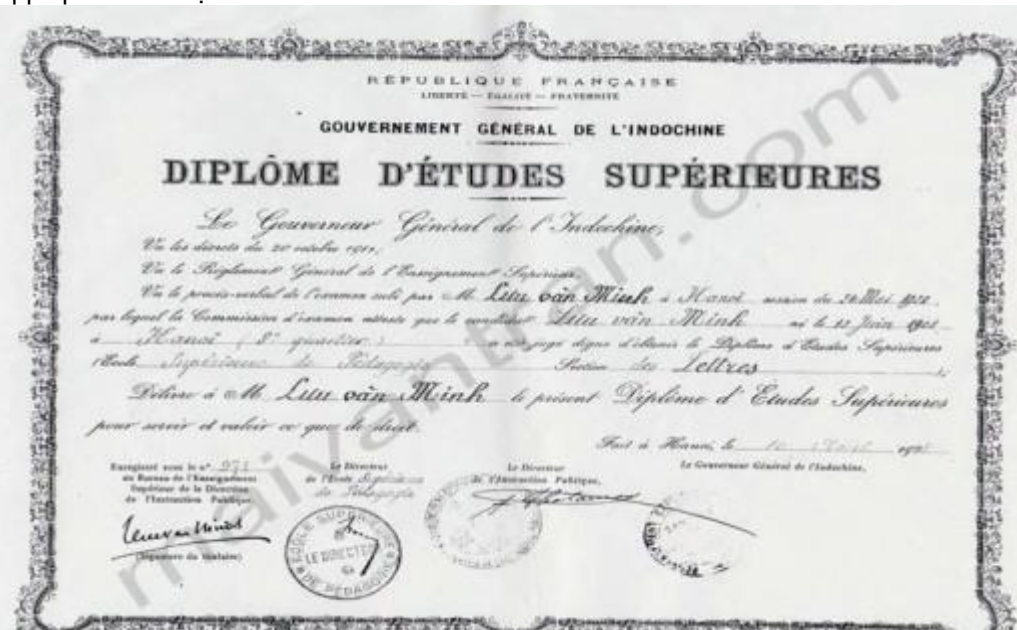 RÉPUBLIQUE FRANÇAISE
LIBERTÉ — ÉGALITÉ — FRATERNITÉ
GOUVERNEMENT GÉNÉRAL DE L'INDOCHINE
DIPLÔME D'ÉTUDES SUPÉRIEURES
Le Gouverneur Général de l'Indochine,
Vu les décrets du 20 octobre 1911,
Vu le Règlement Général de l'Enseignement Supérieur,
Vu le procès-verbal de l'examen subi par M. Lưu văn Minh à Hanoï session du 24 Mai
par lequel la Commission d'examen atteste que le candidat Lưu văn Minh né le Juin
à Hanoï (8e quartier) a été jugé digne d'obtenir le Diplôme d'Etudes Supérieures
l'Ecole Supérieure de Pédagogie Section des Lettres
Délivre à M. Lưu văn Minh le présent Diplôme d'Etudes Supérieures
pour servir et valoir ce que de droit.
Fait à Hanoï, le
Enregistré sous le n° 973
au Bureau de l'Enseignement
Supérieur de la Direction
de l'Instruction Publique
(Signature du titulaire)
Le Directeur
de l'Ecole Supérieure
de Pédagogie
ÉCOLE SUPÉRIEURE DE PÉDAGOGIE
LE DIRECTEUR
Le Directeur
de l'Instruction Publique,
Le Gouverneur Général de l'Indochine,
maivantran.com